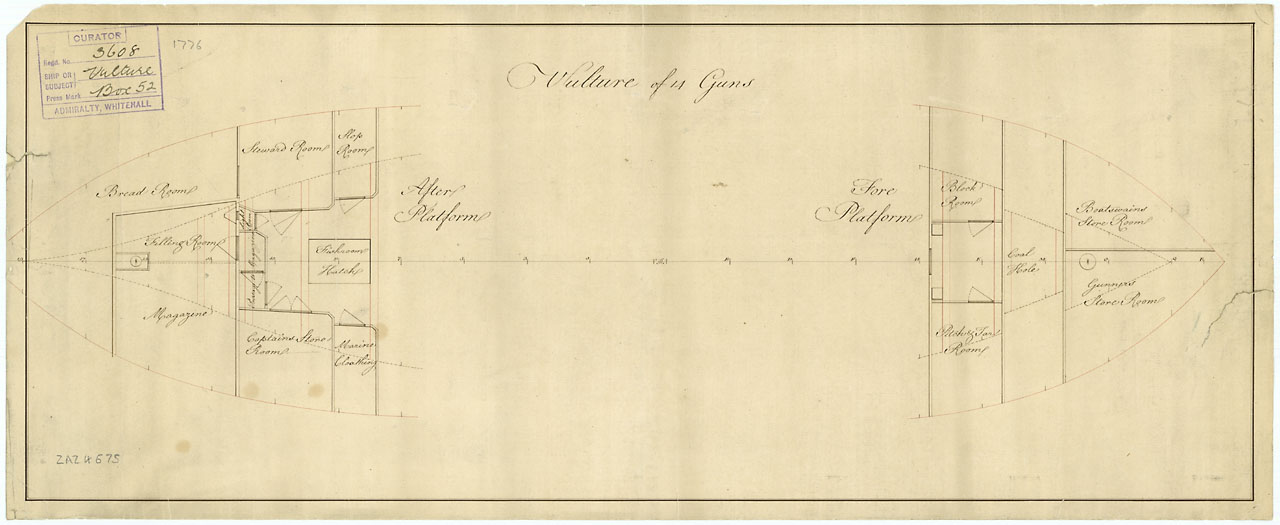 CURATOR
Regd. No. 3608
SHIP OR SUBJECT Vulture
Press Mark Box 52
ADMIRALTY, WHITEHALL
1776
Vulture of 14 Guns
Steward Room
Slop
Room
Bread Room
After
Platform
Filling Room
Fishroom
Hatch
Magazine
Captains Store
Room
Marine
Cloathing
Fore
Platform
Block
Room
Boatswains
Store Room
Coal
Hole
Gunners
Store Room
Pitch & Tar
Room
ZAZ4675